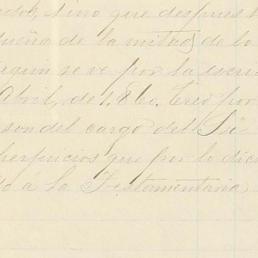 sino que despues
dueña de la mitad de lo
segun se ve por la escri
Abril, de 1860. Creo por
son del cargo del Sr
perjuicios que por lo dicho
á la Testamentaria